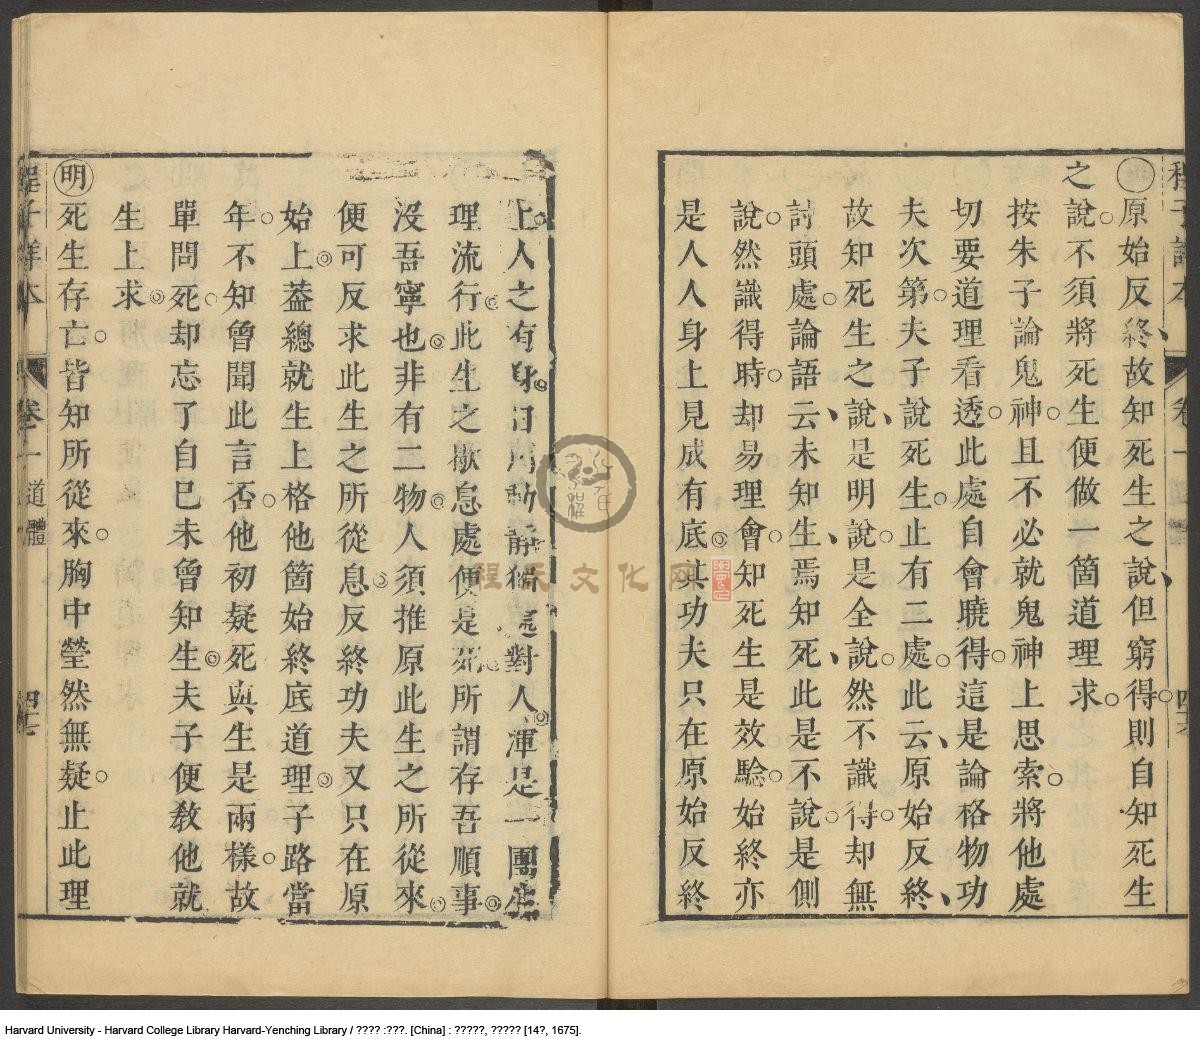 原始反終故知死生之說但窮得則自知死生
之說不須將死生便做一箇道理求
按朱子論鬼神且不必就鬼神上思索將他處
切要道理看透此處自會曉得這是論格物功
夫次第夫子說死生止有二處此云原始反終
故知死生之說是明說是全說然不識得却無
討頭處論語云未知生焉知死此是不說是側
說然識得時却易理會知死生是效騐始終亦
是人人身上見成有底其功夫只在原始反終
上人之有身日用動靜獨處對人渾是一團生
理流行此生之歇息處便是死所謂存吾順事
沒吾寧也非有二物人須推原此生之所從來
便可反求此生之所從息反終功夫又只在原
始上葢總就生上格他箇始終底道理子路當
年不知曾聞此言否他初疑死與生是兩樣故
單問死却忘了自己未曾知生夫子便敎他就
生上求
明死生存亡皆知所從來胸中瑩然無疑止此理
卷一 道體
程天文化网
Harvard University - Harvard College Library Harvard-Yenching Library / ???? :???. [China] : ?????, ????? [14?, 1675].